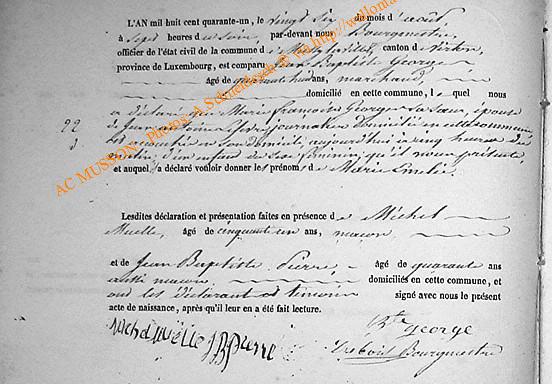 L'AN mil huit cent quarante-un, le vingt six du mois d'août,
à sept heures du soir, par-devant nous Bourgmestre
officier de l'état civil de la commune de canton de Virton,
province de Luxembourg, est comparu Jean Baptiste George
âgé de quarante huit ans, marchand
domicilié en cette commune, lequel nous
a déclaré que Marie françoise George sa sœur, épouse
à Jean journalier domicilié en cette commune,
est accouchée en son domicile, aujourd'hui à cinq heures du
matin, d'un enfant du sexe féminin, qu'il nous présente
et auquel, a déclaré vouloir donner les prénoms de Marie
22
Lesdites déclaration et présentation faites en présence de Michel
Muelle, âgé de cinquante un ans, maçon
et de Jean Baptiste Pierre, âgé de quarante ans
aussi maçon domiciliés en cette commune, et
ont les déclarant et témoin signé avec nous le présent
acte de naissance, après qu'il leur en a été fait lecture.
michel muelle JBpierre
Bte George
Bourgmestre
AC MUSSON - Photos: A Schneidesch © via http://www.wellonia